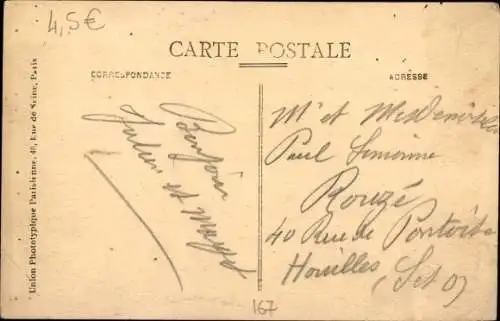 4,5€
CARTE POSTALE
CORRESPONDANCE
ADRESSE
Union Phototypique Parisienne, 48, Rue de Seine, Paris
Bonjour
et
Mr et Mesdemoiselles
Paul Simonne
Rouzé
40 Rue de Pontoise
Houilles (Set O)
167